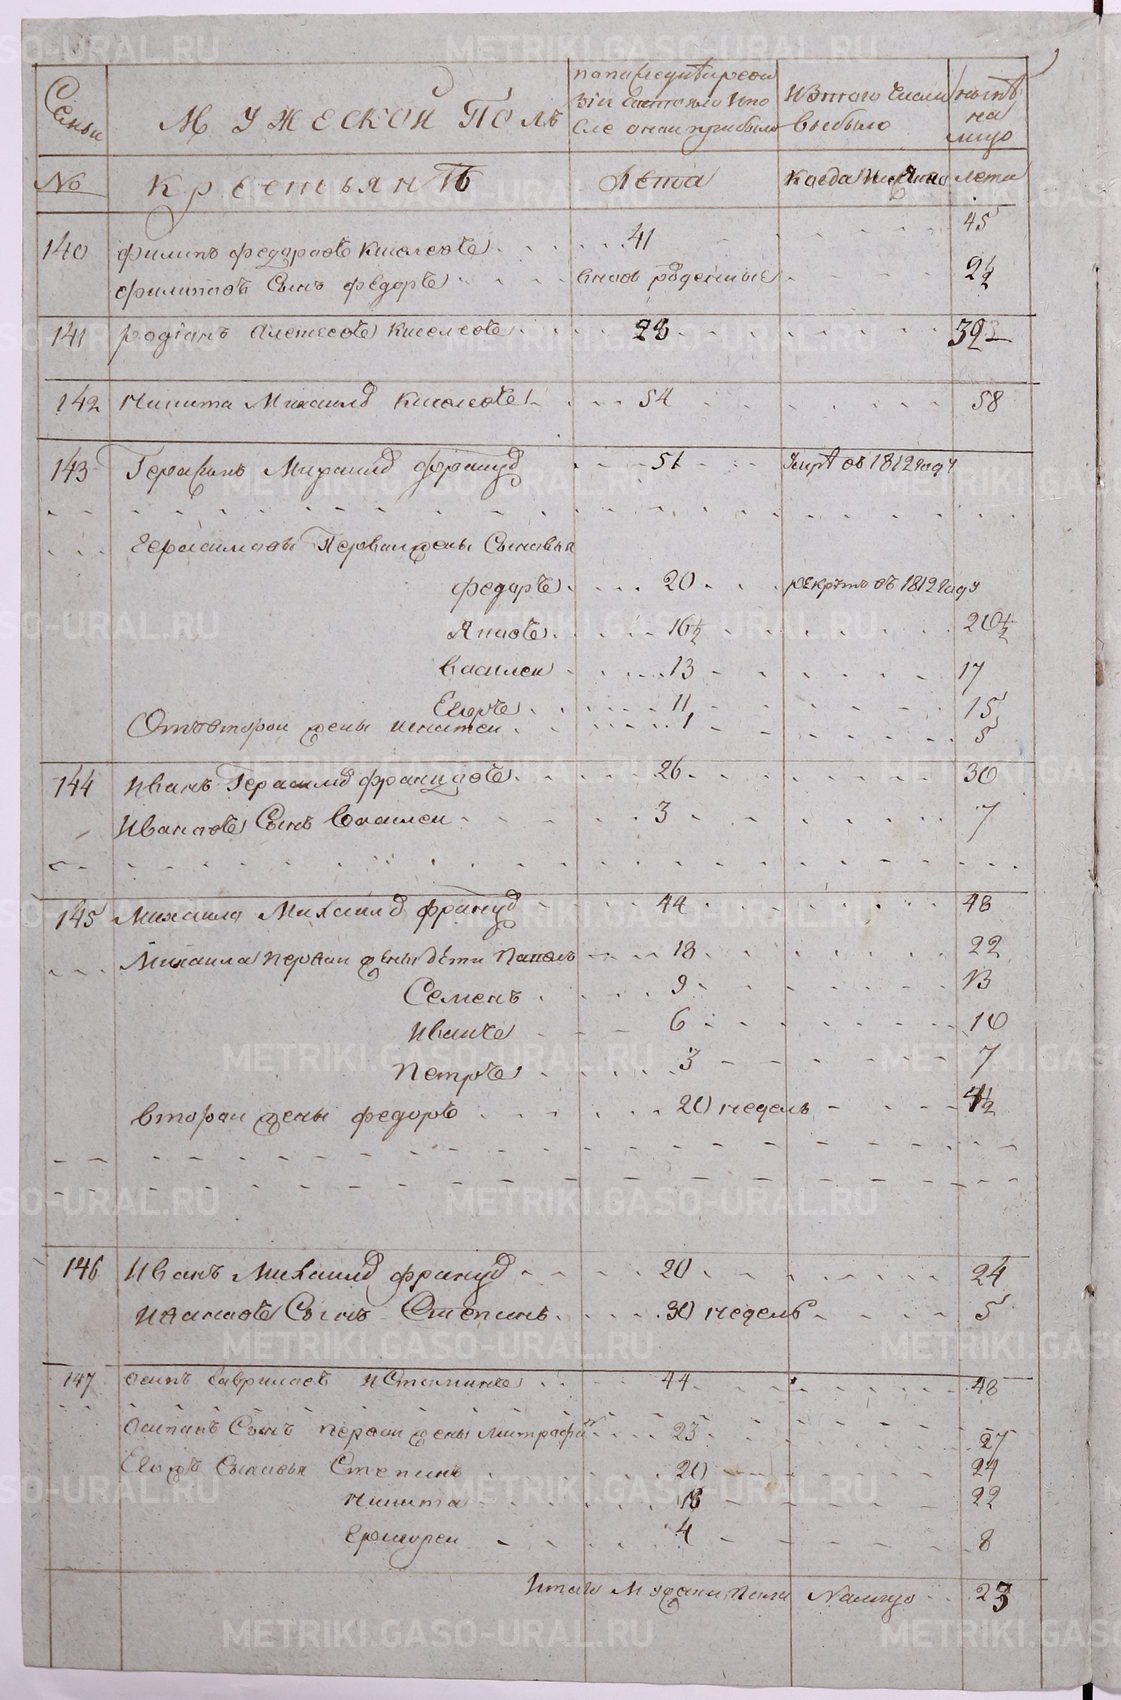 Семьи
Мужеской Полъ
попаследней ревизии состояло и после онаи прибыло
Изтого числа выбыло
ныне на лицо
№
Крестьянъ
Лета
Когда именно
лета
140 филипъ федоравъ Киселевъ 41 45
филипавъ Сынъ федоръ вновь рожденные 2½
141 родiанъ Алексеевъ Киселевъ 28 32
142 Никита Михаилд Киселевъ 54 58
143 Герасимъ Михаилд француд 51 умре въ 1812 году
Герасимавы Первай жены Сынавья
федоръ 20 рекрутъ въ 1812 году
Яковъ 16½ 20½
василеи 13 17
Егоръ 11 15
Отъ второи жены игнатеи 1 5
144 Иванъ Герасимд французовъ 26 30
Ивановъ Сынъ василеи 3 7
145 Михаила Михаилд француд 44 48
Михаила первои жены дети павелъ 18 22
Семенъ 9 13
Иванъ 6 10
Петръ 3 7
второи жены федоръ 20 недель 4½
146 Иванъ Михаилд француд 20 24
ивановъ Сынъ Степанъ 30 недель 5
147 осипъ Гавриловъ 44 48
осиповъ Сынъ первои жены митрофанъ 23 27
Егожъ Сынавья Степанъ 20 24
никита 18 22
григореи 4 8
Итого Мужска пола Налицо 23
METRIKI.GASO-URAL.RU